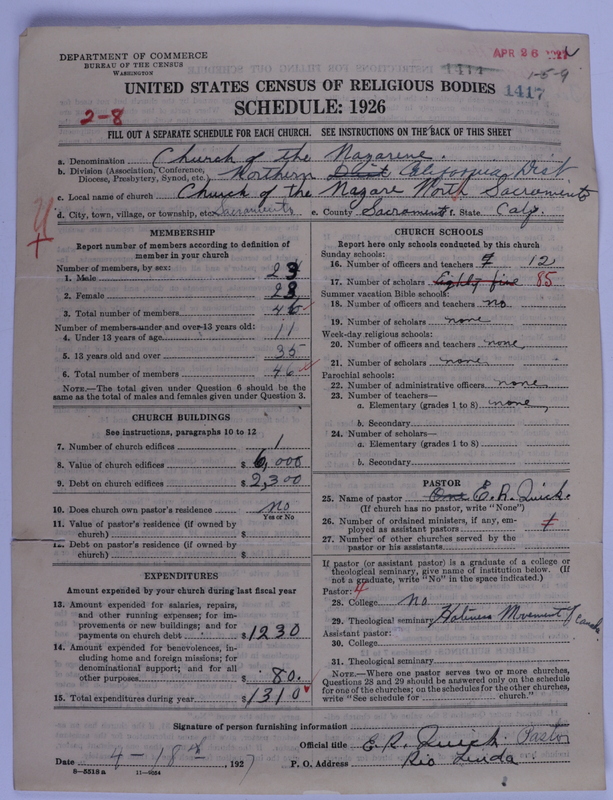 DEPARTMENT OF COMMERCE
BUREAU OF THE CENSUS
WASHINGTON
APR 26
1-5-9
1417
UNITED STATES CENSUS OF RELIGIOUS BODIES
SCHEDULE: 1926
2-8
FILL OUT A SEPARATE SCHEDULE FOR EACH CHURCH. SEE INSTRUCTIONS ON THE BACK OF THIS SHEET
a. Denomination Church of the Nazarene.
b. Division (Association, Conference, Diocese, Presbytery, Synod, etc.) Northern Dist California Dist
c. Local name of church Church of the Nazare North Sacramento
d. City, town, village, or township, etc. Sacramento e. County Sacramento f. State Calif.
MEMBERSHIP
Report number of members according to definition of
member in your church
Number of members, by sex:
1. Male 23
2. Female 23
3. Total number of members 46
Number of members under and over 13 years old:
4. Under 13 years of age 11
5. 13 years old and over 35
6. Total number of members 46
NOTE.—The total given under Question 6 should be the
same as the total of males and females given under Question 3.
CHURCH BUILDINGS
See instructions, paragraphs 10 to 12
7. Number of church edifices 1
8. Value of church edifices $ 6,000
9. Debt on church edifices $ 2,300
10. Does church own pastor's residence No
Yes or No
11. Value of pastor's residence (if owned by
church) $
12. Debt on pastor's residence (if owned by
church) $
EXPENDITURES
Amount expended by your church during last fiscal year
13. Amount expended for salaries, repairs,
and other running expenses; for im-
provements or new buildings; and for
payments on church debt $ 1230
14. Amount expended for benevolences, in-
cluding home and foreign missions; for
denominational support; and for all
other purposes $ 80.
15. Total expenditures during year $ 1310
CHURCH SCHOOLS
Report here only schools conducted by this church
Sunday schools:
16. Number of officers and teachers 7 12
17. Number of scholars Eighty five 85
Summer vacation Bible schools:
18. Number of officers and teachers no
19. Number of scholars none
Week-day religious schools:
20. Number of officers and teachers none
21. Number of scholars none
Parochial schools:
22. Number of administrative officers none
23. Number of teachers—
a. Elementary (grades 1 to 8) none
b. Secondary
24. Number of scholars—
a. Elementary (grades 1 to 8)
b. Secondary
PASTOR
25. Name of pastor One E. R. Quick.
(If church has no pastor, write "None")
26. Number of ordained ministers, if any, em-
ployed as assistant pastors
27. Number of other churches served by the
pastor or his assistants
If pastor (or assistant pastor) is a graduate of a college or
theological seminary, give name of institution below. (If
not a graduate, write "No" in the space indicated.)
Pastor: 4
28. College No
29. Theological seminary Holiness Movement of Canada
Assistant pastor:
30. College
31. Theological seminary
NOTE.—Where one pastor serves two or more churches,
Questions 28 and 29 should be answered only on the schedule
for one of the churches; on the schedules for the other churches,
write "See schedule for church."
Signature of person furnishing information
Official title E. R. Quick Pastor
Date 4-18 1927 P. O. Address Rio Linda
8-5518a 11-9054